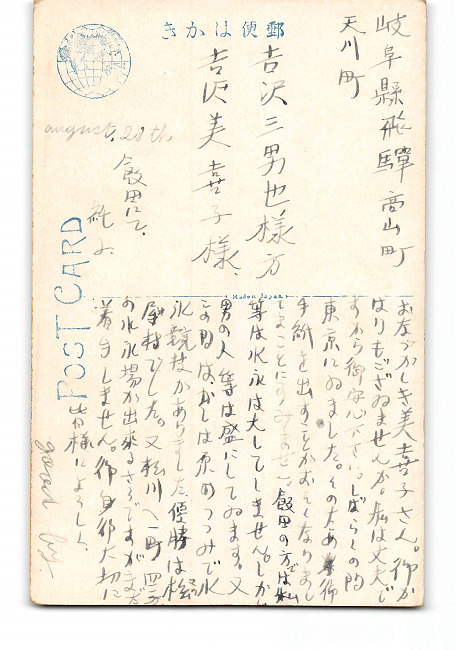 郵便はかき
岐阜縣飛驒高山町
天川町
吉沢三男也様方
吉沢美喜子様
august. 28th
飯田にて、
POST CARD
お左つかしき美喜子さん。御か
はりもございませんか。私は丈夫で
すから御安心下さい。しばらくの間
東京にゐました。そのため御
手紙を出すことがおそくなりまし
まことにすみません。飯田の方では私
等は水泳は大してしません。しかし
男の人等は盛にしてゐます。又
この間はかしは原のつつみで水
泳競技がありました。優勝は松
尾村でした。又松川へ一町四方
の水泳場が出来るさうですがまだ
着手しません。御身御大切に
皆様によろしく
good by